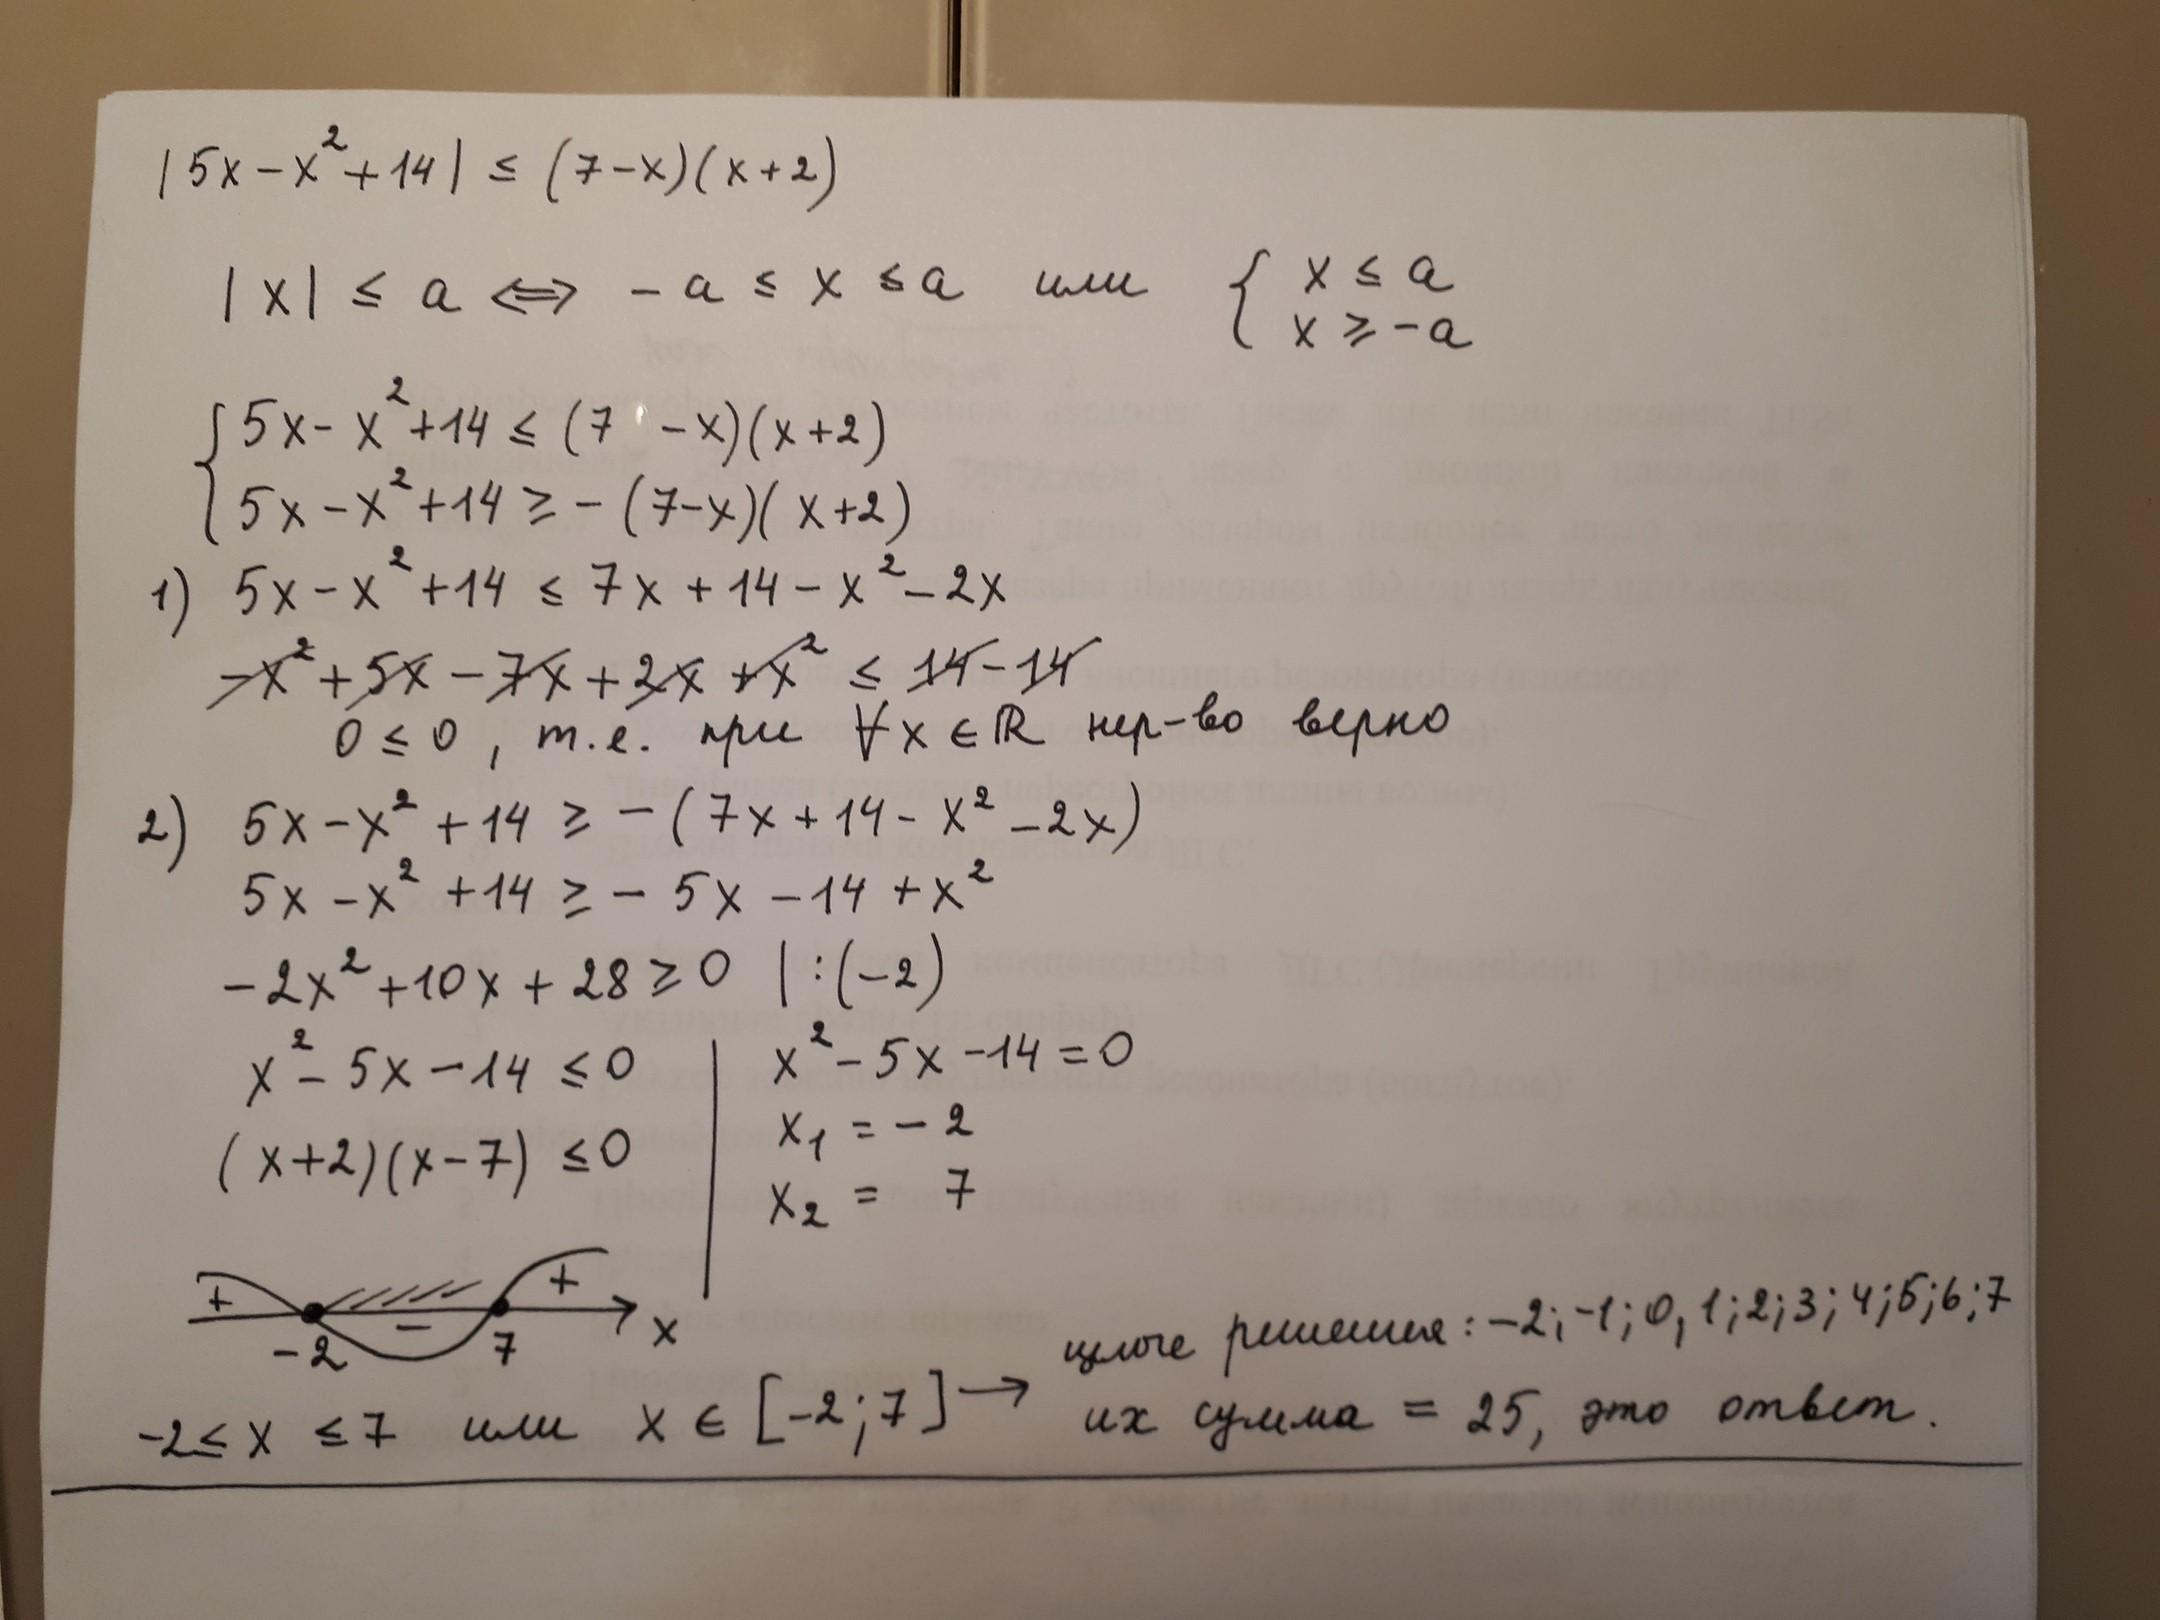 |5x - x² + 14| ≤ (7 - x)(x + 2)
|x| ≤ a ⟺ - a ≤ x ≤ a или { x ≤ a
x ≥ - a
{ 5x - x² + 14 ≤ (7 - x)(x + 2)
5x - x² + 14 ≥ - (7 - x)(x + 2)
1) 5x - x² + 14 ≤ 7x + 14 - x² - 2x
- x² + 5x - 7x + 2x + x² ≤ 14 - 14
0 ≤ 0, т.е. при ∀ x ∈ ℝ нер-во верно
2) 5x - x² + 14 ≥ - (7x + 14 - x² - 2x)
5x - x² + 14 ≥ - 5x - 14 + x²
- 2x² + 10x + 28 ≥ 0 | : (-2)
x² - 5x - 14 ≤ 0
(x + 2)(x - 7) ≤ 0
x² - 5x - 14 = 0
x₁ = - 2
x₂ = 7
+ - +
-2 7 x
-2 ≤ x ≤ 7 или x ∈ [-2; 7] →
целые решения: -2; -1; 0, 1; 2; 3; 4; 5; 6; 7
их сумма = 25, это ответ.